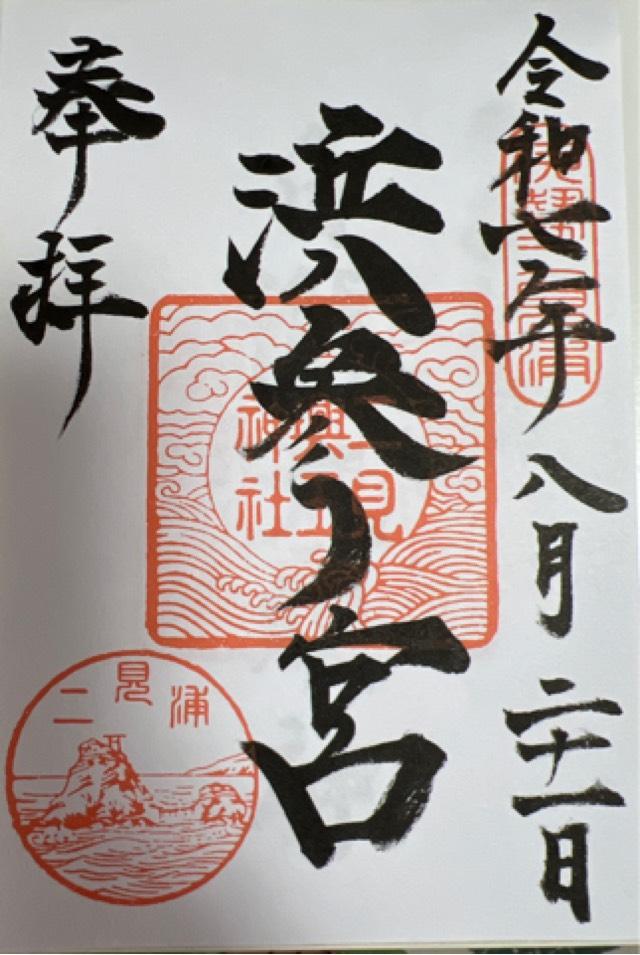 令和七年八月二十一日
伊勢二見浦
浜参宮
二見興玉神社
奉拝
二見浦